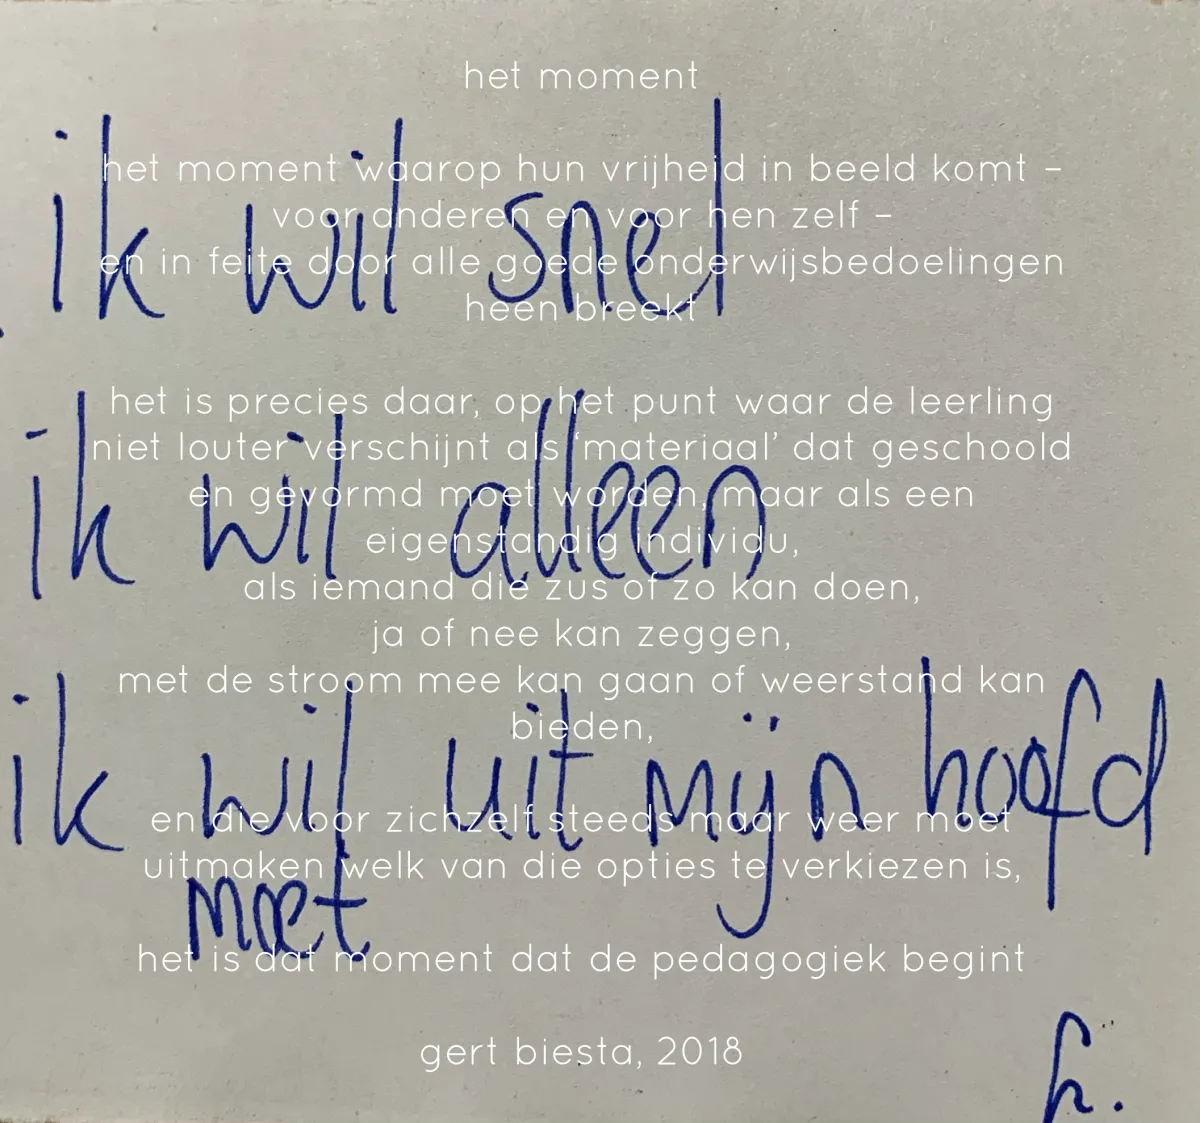 het moment
het moment waarop hun vrijheid in beeld komt –
voor anderen en voor hen zelf –
en in feite door alle goede onderwijsbedoelingen
heen breekt
het is precies daar, op het punt waar de leerling
niet louter verschijnt als ‘materiaal’ dat geschoold
en gevormd moet worden, maar als een
eigenstandig individu,
als iemand die zus of zo kan doen,
ja of nee kan zeggen,
met de stroom mee kan gaan of weerstand kan
bieden,
en die voor zichzelf steeds maar weer moet
uitmaken welk van die opties te verkiezen is,
het is dat moment dat de pedagogiek begint
gert biesta, 2018
ik wil snel
ik wil alleen
ik wil uit mijn hoofd
moet
h.